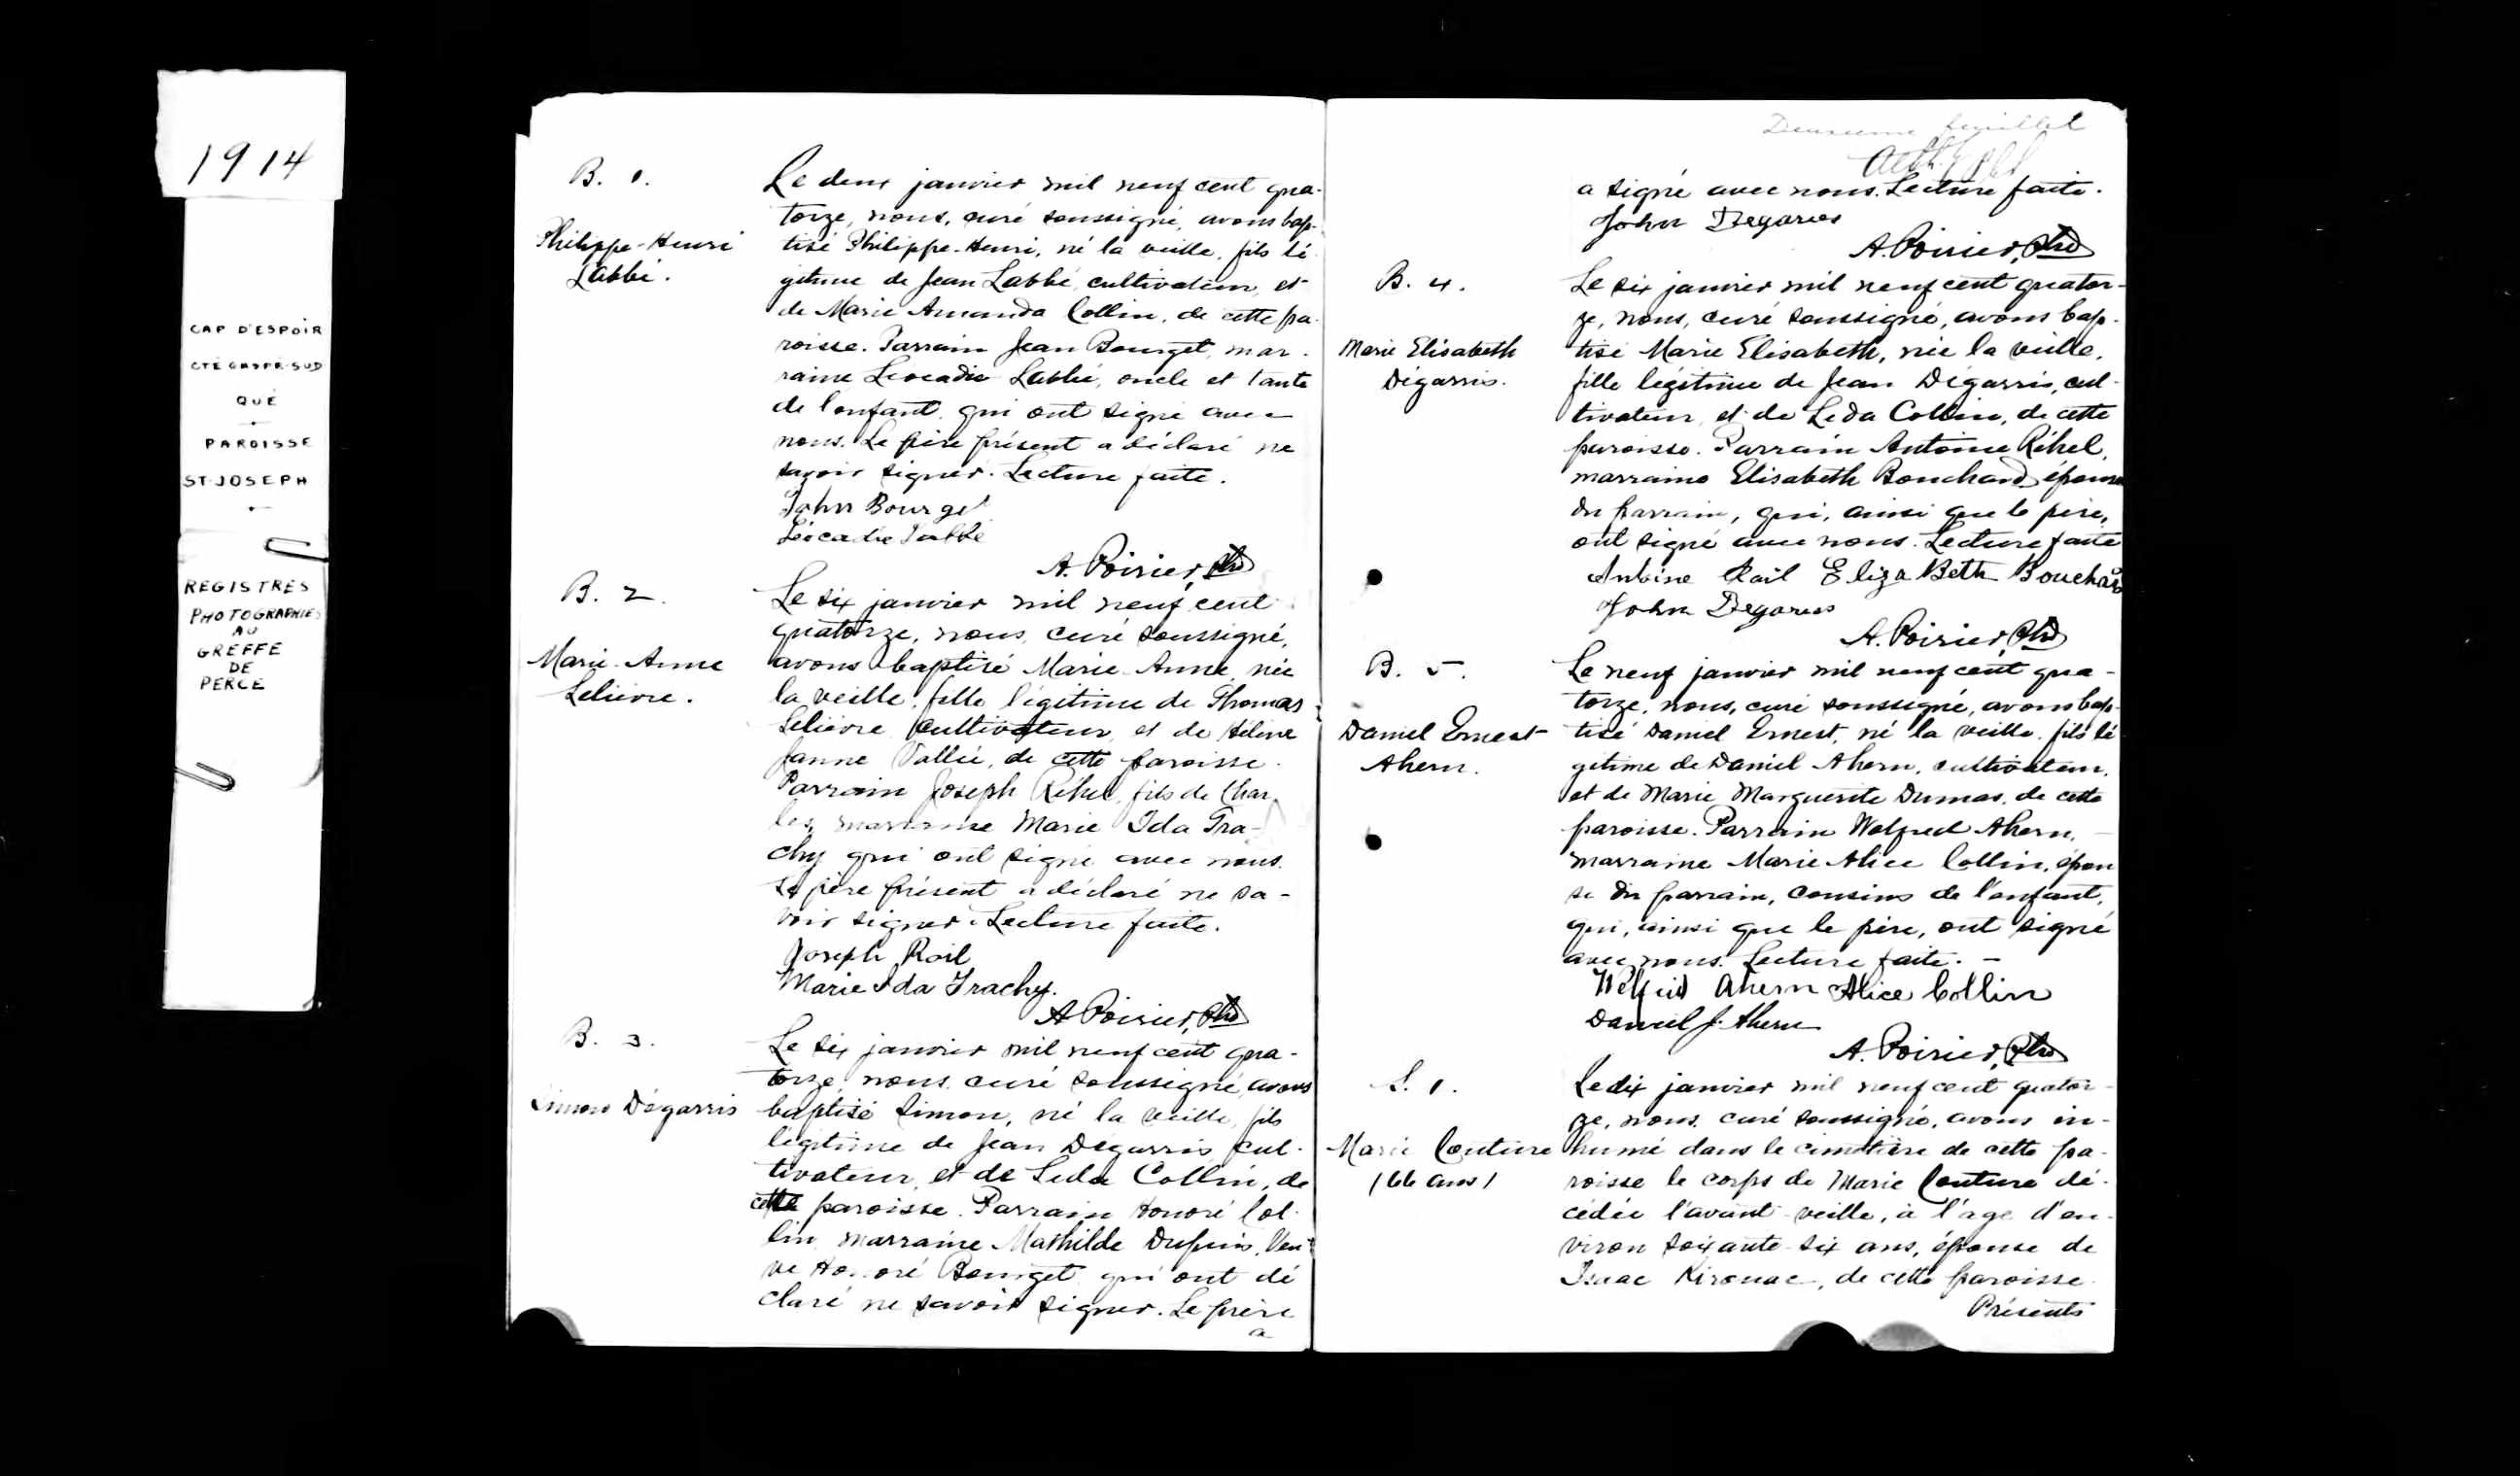 1914
CAP D'ESPOIR
CTÉ GASPÉ-SUD
QUÉ
PAROISSE
ST-JOSEPH
REGISTRES
PHOTOGRAPHIÉS
AU
GREFFE
DE
PERCÉ
B. 1.
Philippe-Henri
Labbé.
Le deux janvier mil neuf cent qua-
torze, nous, curé soussigné, avons bap-
tisé Philippe-Henri, né la veille, fils lé-
gitime de Jean Labbé, cultivateur, et
de Marie Amanda Collin, de cette pa-
roisse. Parrain Jean Bourget, mar-
raine Léocadie Labbé, oncle et tante
de l'enfant, qui ont signé avec
nous. Le père présent a déclaré ne
savoir signer. Lecture faite.
John Bourget
Léocadie Labbé
A. Poirier, Ptre
B. 2.
Marie-Anne
Lelièvre.
Le six janvier mil neuf cent
quatorze, nous, curé soussigné,
avons baptisé Marie-Anne, née
la veille, fille légitime de Thomas
Lelièvre, cultivateur, et de Hélène
Janne Vallée, de cette paroisse.
Parrain Joseph Réhel, fils de Char-
les, marraine Marie Ida Tra-
chy qui ont signé avec nous.
Le père présent a déclaré ne sa-
voir signer. Lecture faite.
Joseph Rail
Marie Ida Trachy.
A. Poirier, Ptre
B. 3.
Simon Dégarris
Le six janvier mil neuf cent qua-
torze, nous, curé soussigné, avons
baptisé Simon, né la veille, fils
légitime de Jean Dégarris, cul-
tivateur, et de Leda Collin, de
cette paroisse. Parrain Honoré Col-
lin, marraine Mathilde Dupuis, Veu-
ve Honoré Bourget qui ont dé
claré ne savoir signer. Le père
a
Deuxième feuillet
a signé avec nous. Lecture faite.
John Degares
A. Poirier, Ptre
B. 4.
Marie Elisabeth
Dégarris.
Le six janvier mil neuf cent quator-
ze, nous, curé soussigné, avons bap-
tisé Marie Elisabeth, née la veille,
fille légitime de Jean Dégarris, cul-
tivateur, et de Leda Collin, de cette
paroisse. Parrain Antoine Réhel,
marraine Elisabeth Bouchard, épouse
du parrain, qui, ainsi que le père,
ont signé avec nous. Lecture faite
Antoine Rail Eliza Beth Bouchard
John Degares
A. Poirier, Ptre
B. 5.
Daniel Ernest
Ahern.
Le neuf janvier mil neuf cent qua-
torze, nous, curé soussigné, avons bap-
tisé Daniel Ernest, né la veille, fils lé
gitime de Daniel Ahern, cultivateur,
et de Marie Marguerite Dumas, de cette
paroisse. Parrain Welfred Ahern,
marraine Marie Alice Collin, épou
se du parrain, cousins de l'enfant,
qui, ainsi que le père, ont signé
avec nous. Lecture faite. -
Welfrid Ahern Alice Collin
Daniel J. Ahern
A. Poirier, Ptre
S. 1.
Marie Couture
(66 ans)
Le dix janvier mil neuf cent quator-
ze, nous, curé soussigné, avons in-
humé dans le cimetière de cette pa-
roisse le corps de Marie Couture dé-
cédée l'avant-veille, à l'age d'en-
viron soixante-six ans, épouse de
Isaac Kirouac, de cette paroisse.
Présents